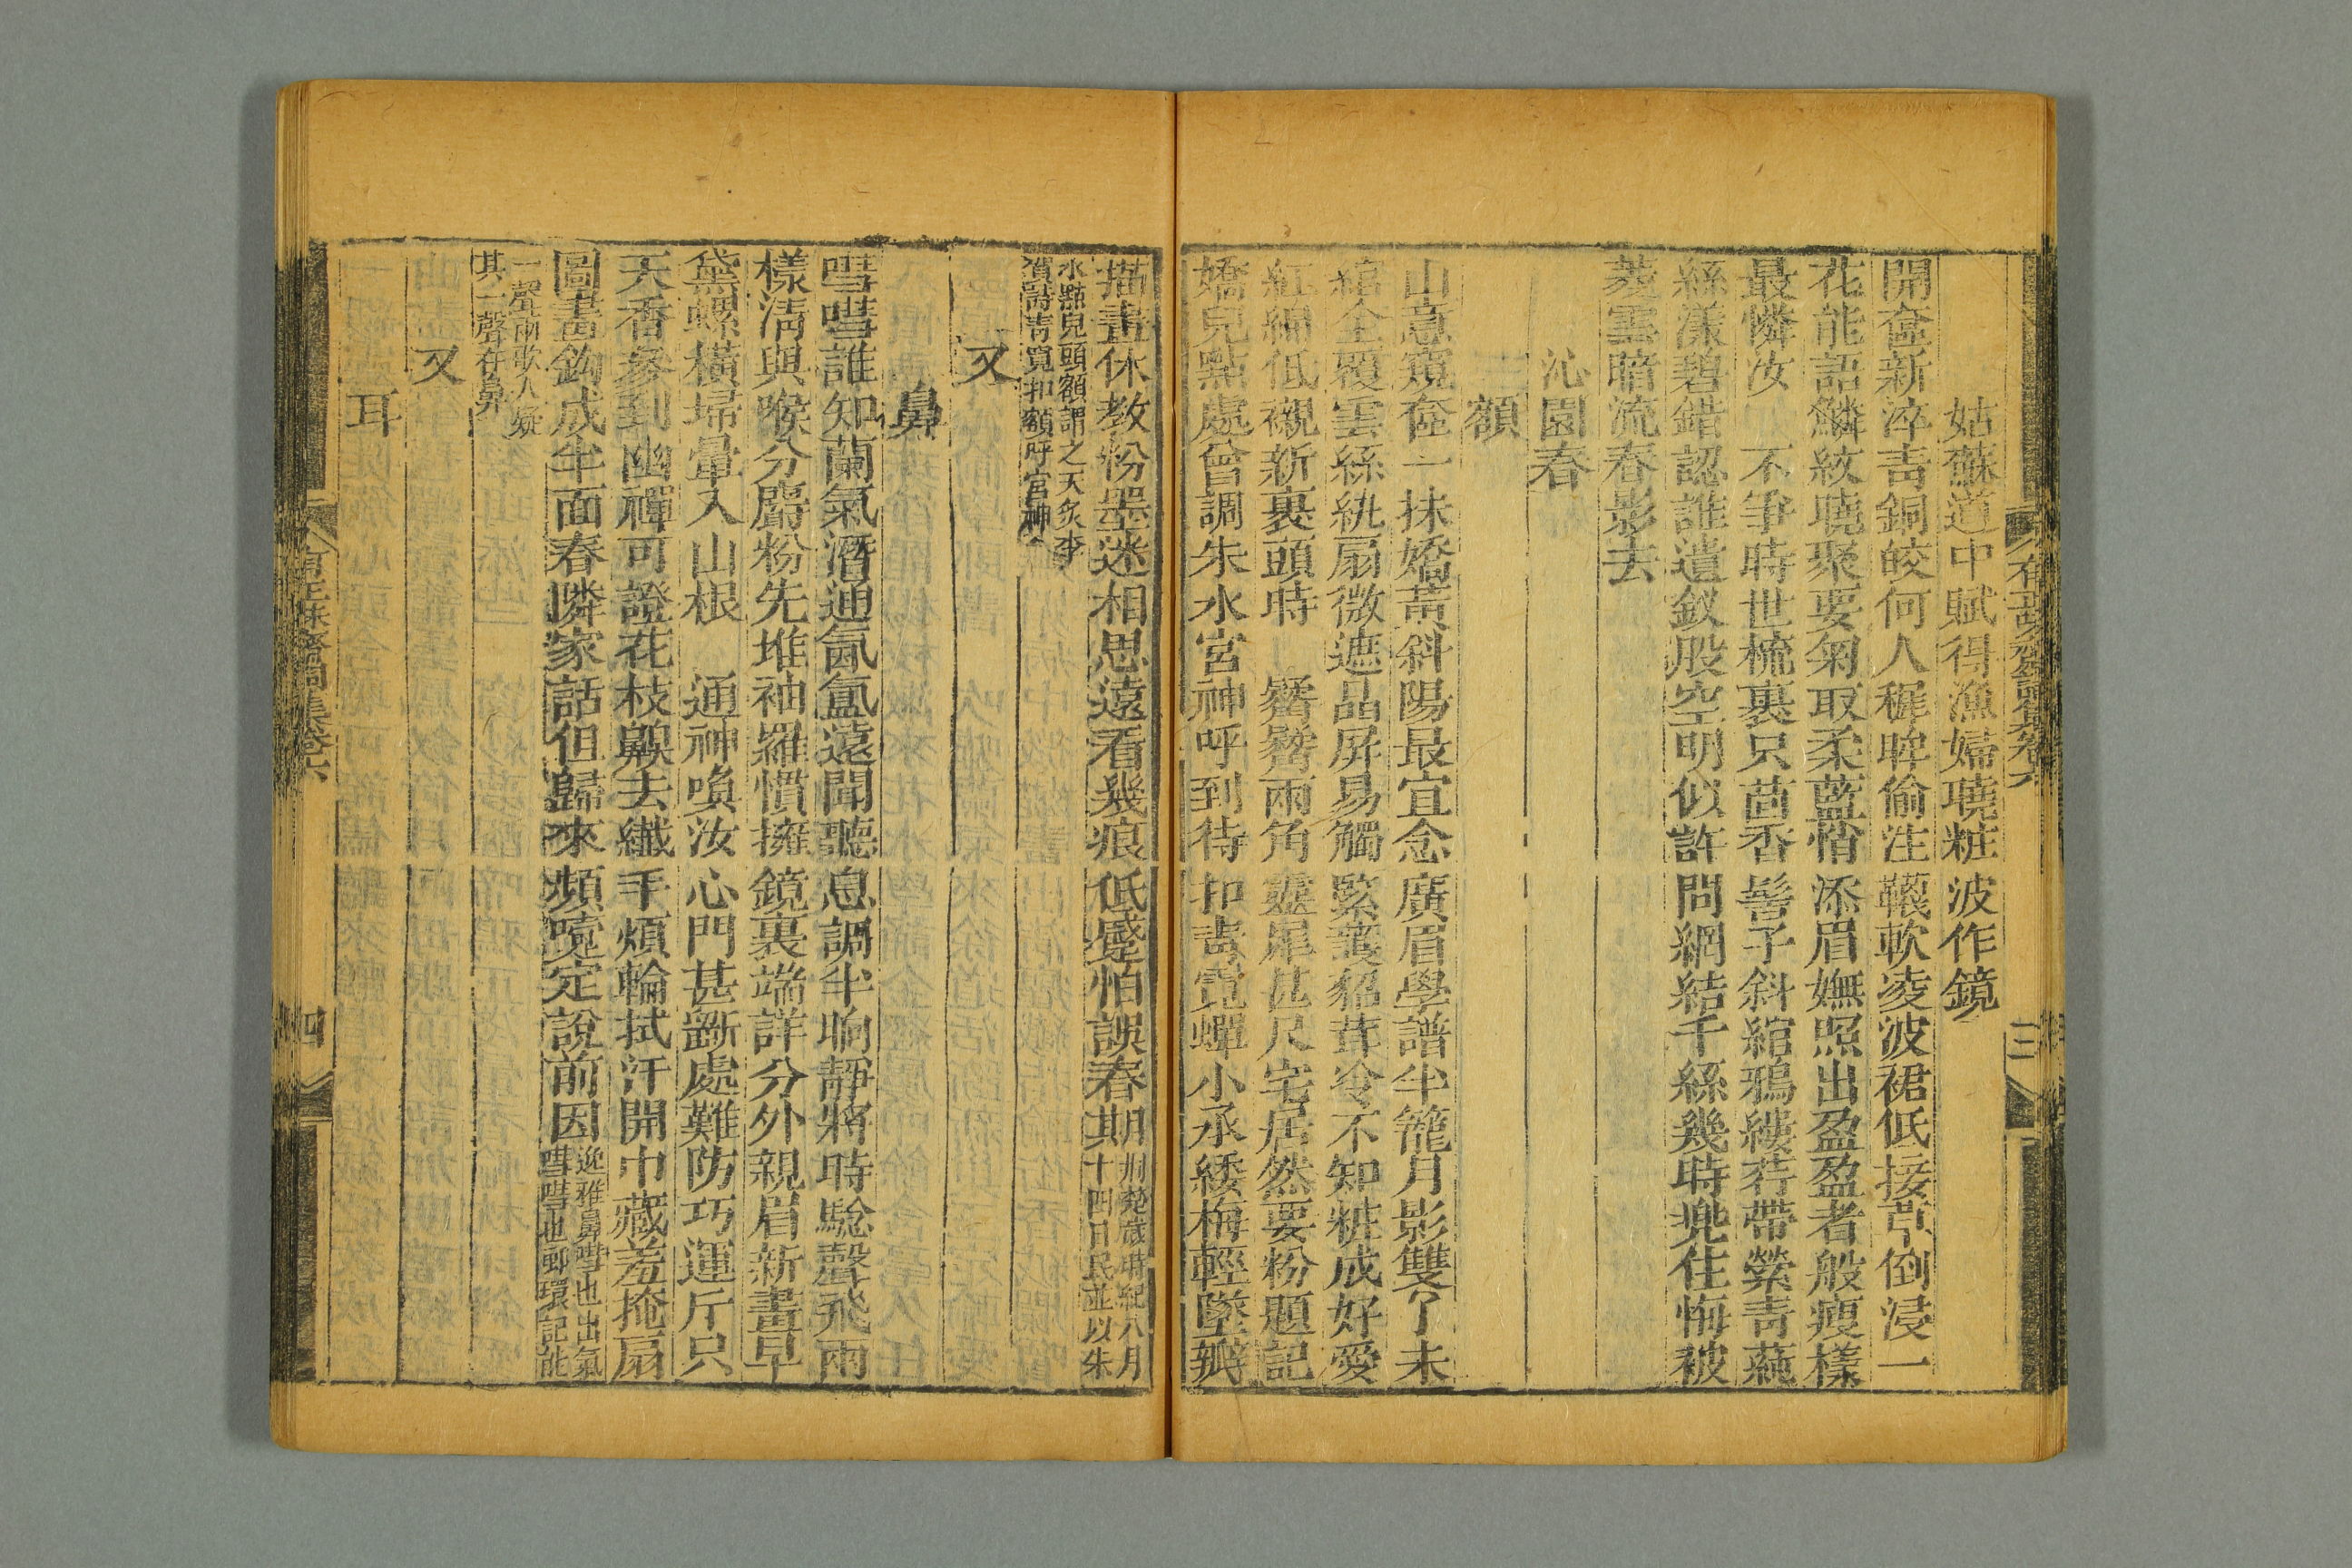 姑蘇道中賦得漁婦曉粧波作鏡
開奩新淬青銅皎何人穉眸偷注鞵軟凌波裙低接草倒浸一
花能語鱗紋曉聚要匊取柔藍悄添眉嫵照出盈盈者般瘦樣
最憐汝 不爭時世梳裹只茴香髻子斜綰鴉縷荇帶縈青蘋
絲漾碧錯認誰遺釵股空明似許問網結千絲幾時兜住悔被
菱雲暗流春影去
沁園春
額
山意窺奩一抹嬌黃斜陽最宜念廣眉學譜半籠月影雙了未
綰全覆雲絲紈扇微遮品屏易觸緊護貂茸冷不知粧成好愛
紅綿低襯新裹頭時 鬟兩角靈犀甚尺宅居然要粉題記
嬌兒點處曾調朱水宮神呼到待扣青蟬小承緌梅輕墜瓣
描畫休教粉墨迷相思遠看幾痕低蹙怕誤春期荆楚歲時記八月
十四日民並以朱
水點兒頭額謂之天炙李
賀詩青霓扣額呼宮神
又
鼻
嘒嘒誰知蘭氣潛通氤氳遠聞聽息調半晌靜將時驗聲飛兩
樣清與喉分麝粉先堆袖羅慣擁鏡裏端詳分外親眉新畫早
黛螺橫埽暈入山根 通神喚汝心門甚斵處難防巧運斤只
天香參到幽禪可證花枝齅去纖手煩輪拭汗開巾藏羞掩扇
圖畫鉤成半面春憐家話但歸來頻嚏定說前因迩雅鼻嘒也出氣
嘒嘒也鄭環記能
一聲兩歌人疑
其一聲在鼻
又
耳
三
四